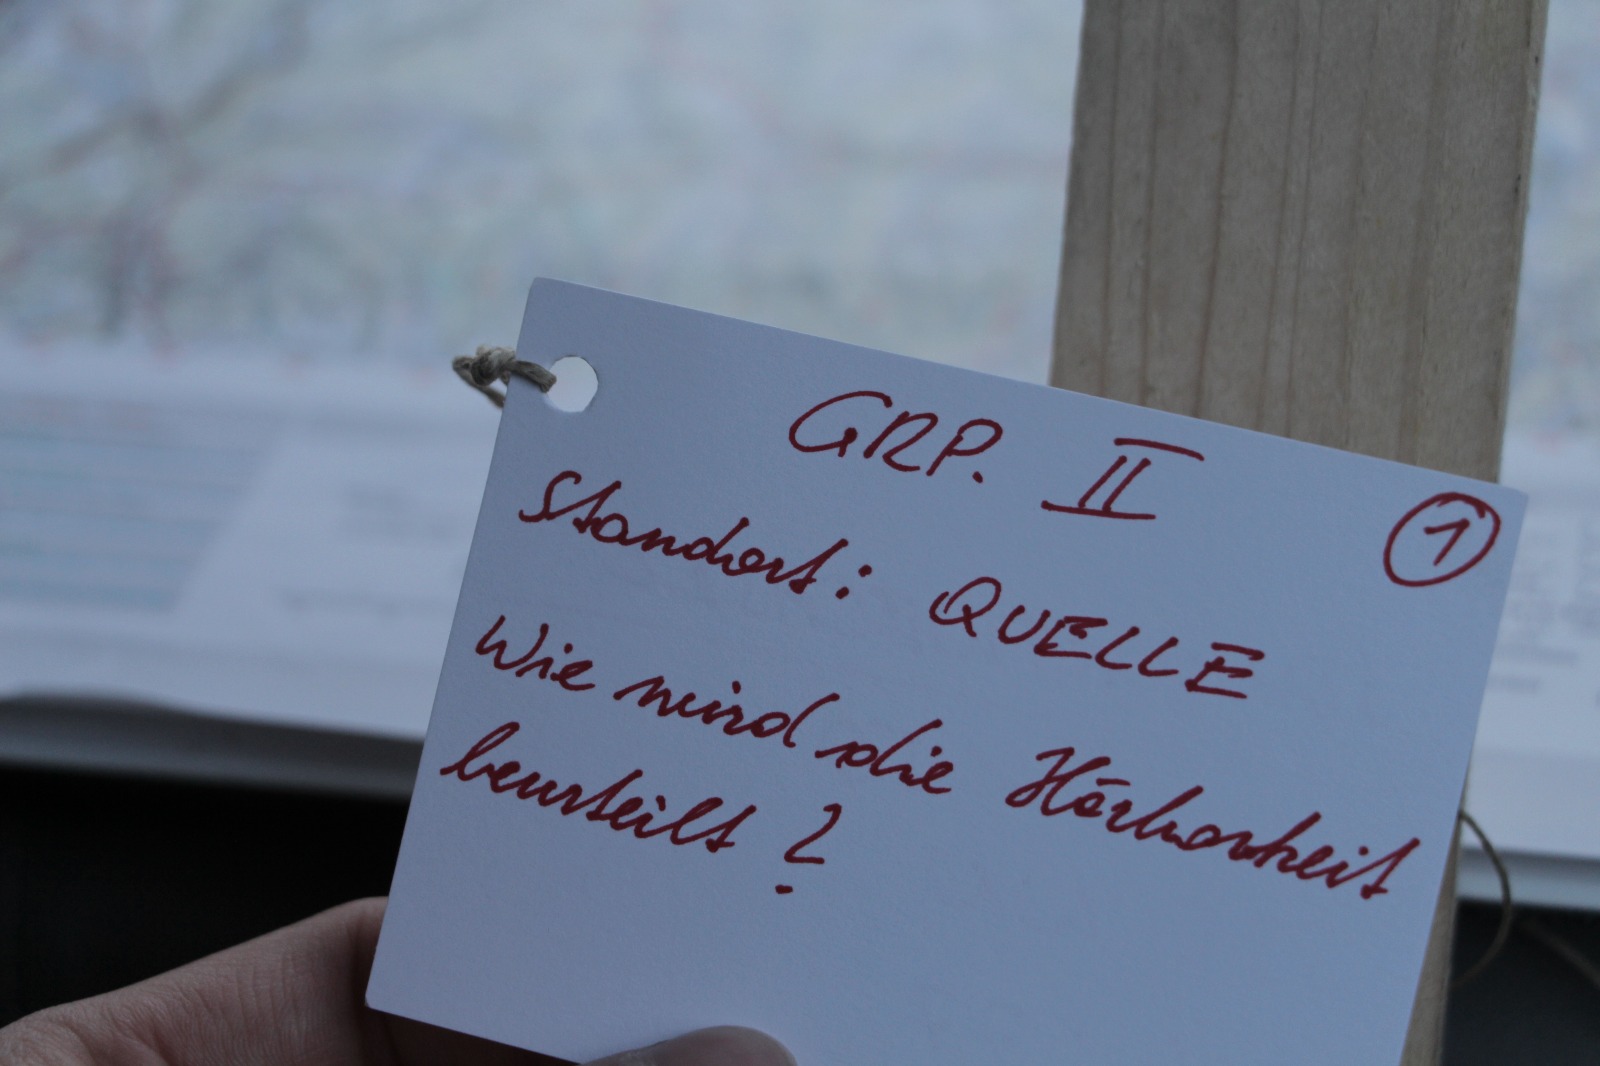 GRP. II
1
Standort: QUELLE
Wie wird die Hörbarkeit
beurteilt?